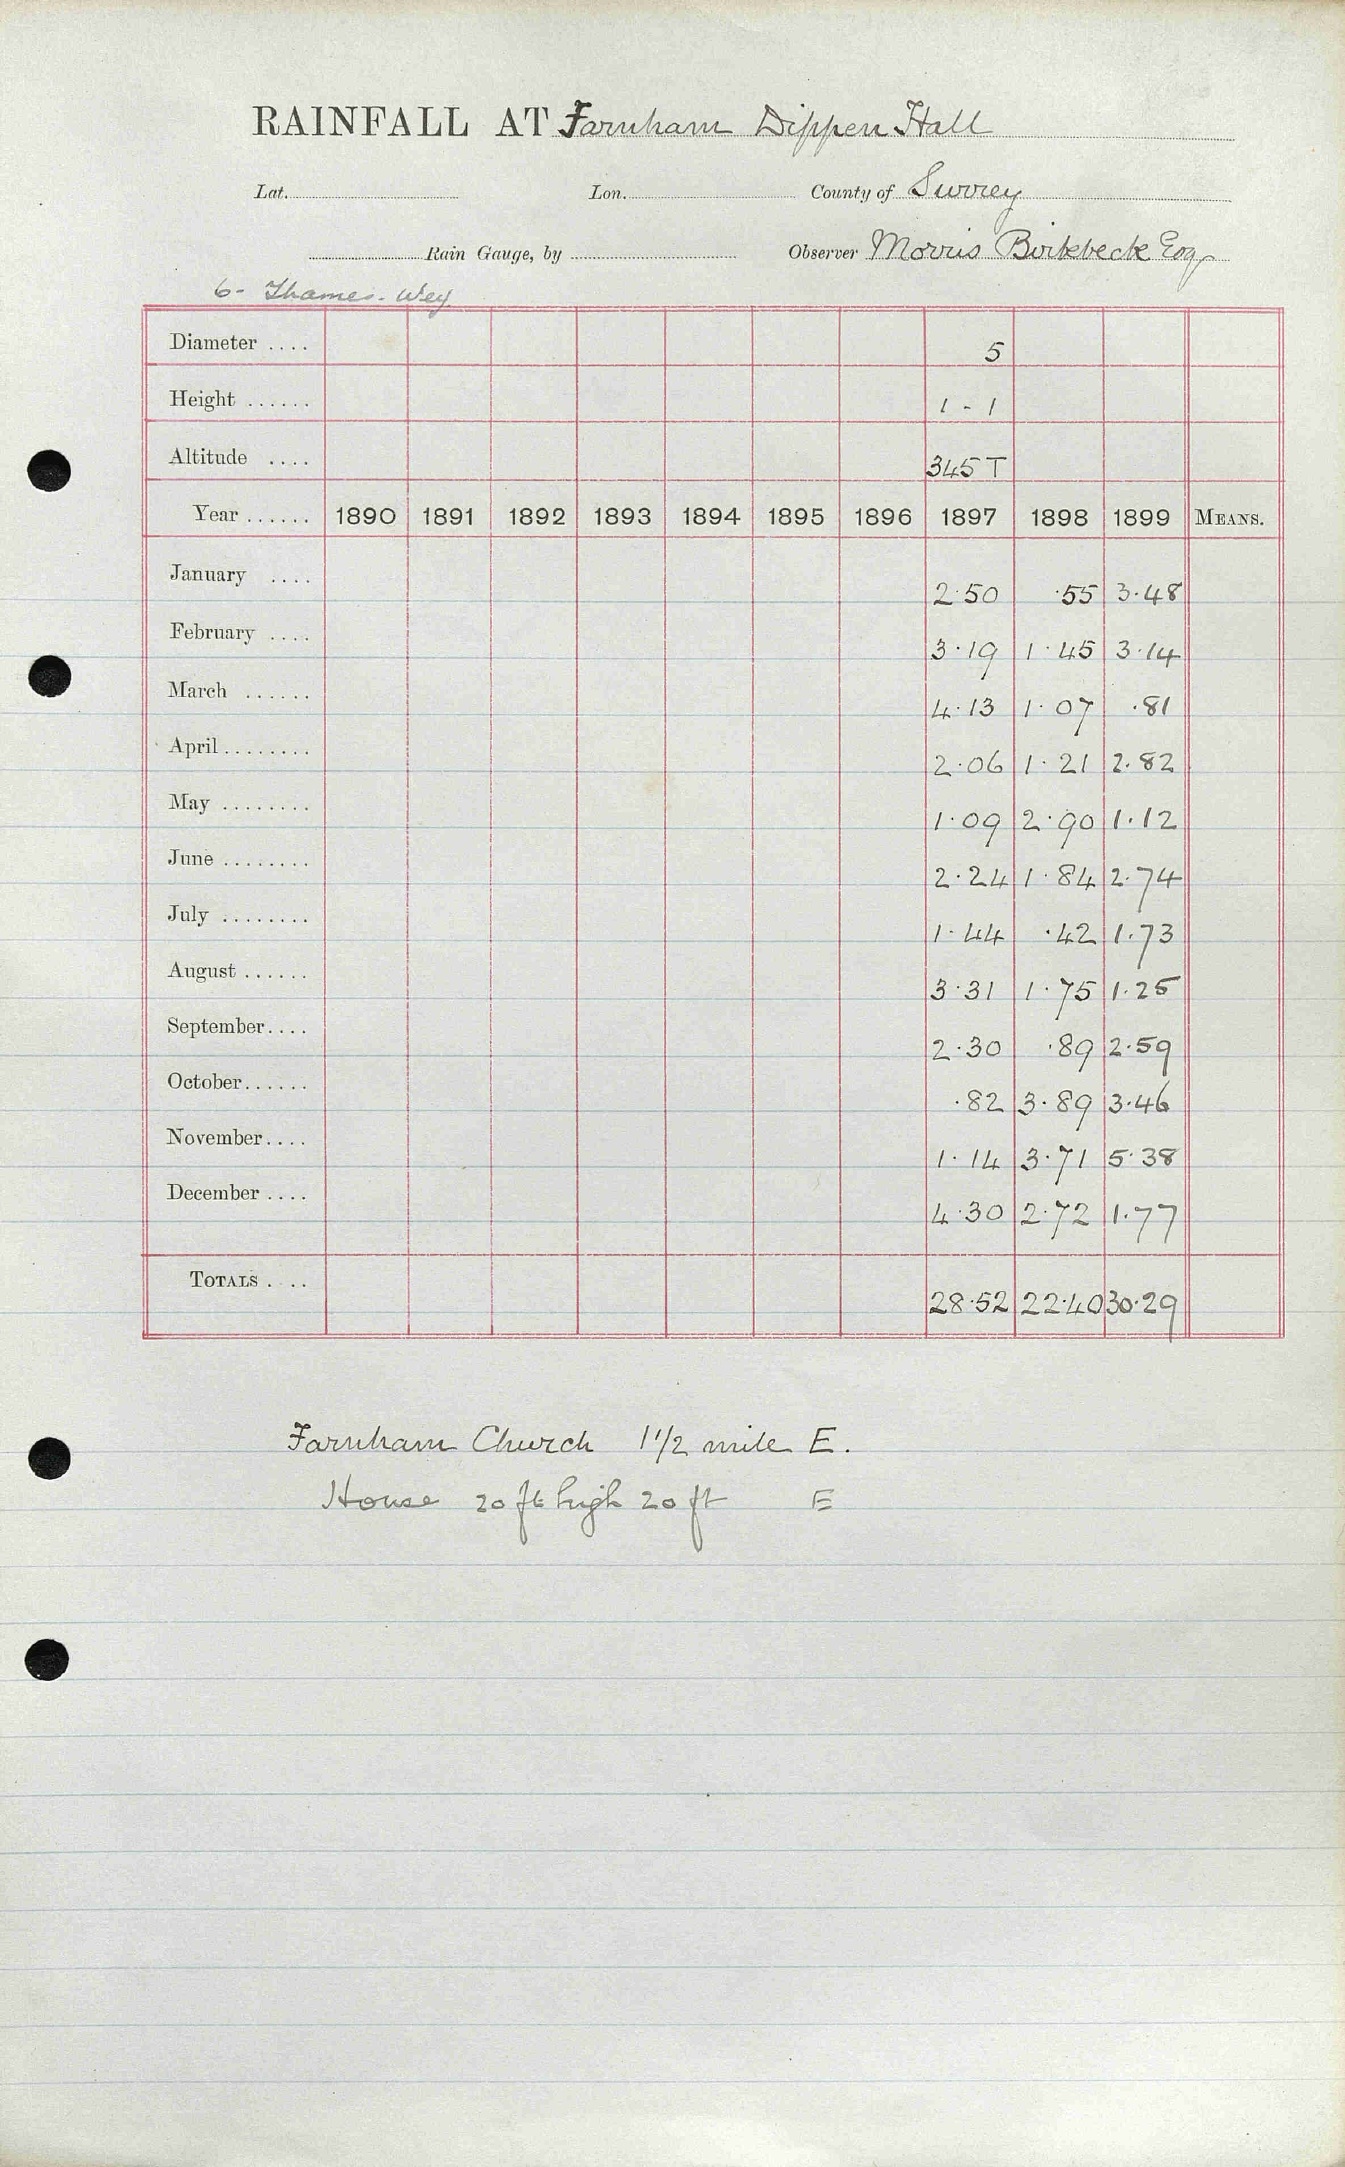 RAINFALL AT Farnham Dippen Hall
Lat. Lon. County of Surrey
Rain Gauge, by Observer Morris Birkbeck Esq
6 - Thames - Wey
Diameter .... 5
Height ...... 1 - 1
Altitude .... 345 T
Year ...... 1890 1891 1892 1893 1894 1895 1896 1897 1898 1899 MEANS.
January .... 2.50 .55 3.48
February .... 3.19 1.45 3.14
March ...... 4.13 1.07 .81
April ........ 2.06 1.21 2.82
May ........ 1.09 2.90 1.12
June ........ 2.24 1.84 2.74
July ........ 1.44 .42 1.73
August ...... 3.31 1.75 1.25
September .... 2.30 .89 2.59
October ...... .82 3.89 3.46
November .... 1.14 3.71 5.38
December .... 4.30 2.72 1.77
TOTALS .... 28.52 22.40 30.29
Farnham Church 1 1/2 mile E.
House 20 ft high 20 ft E